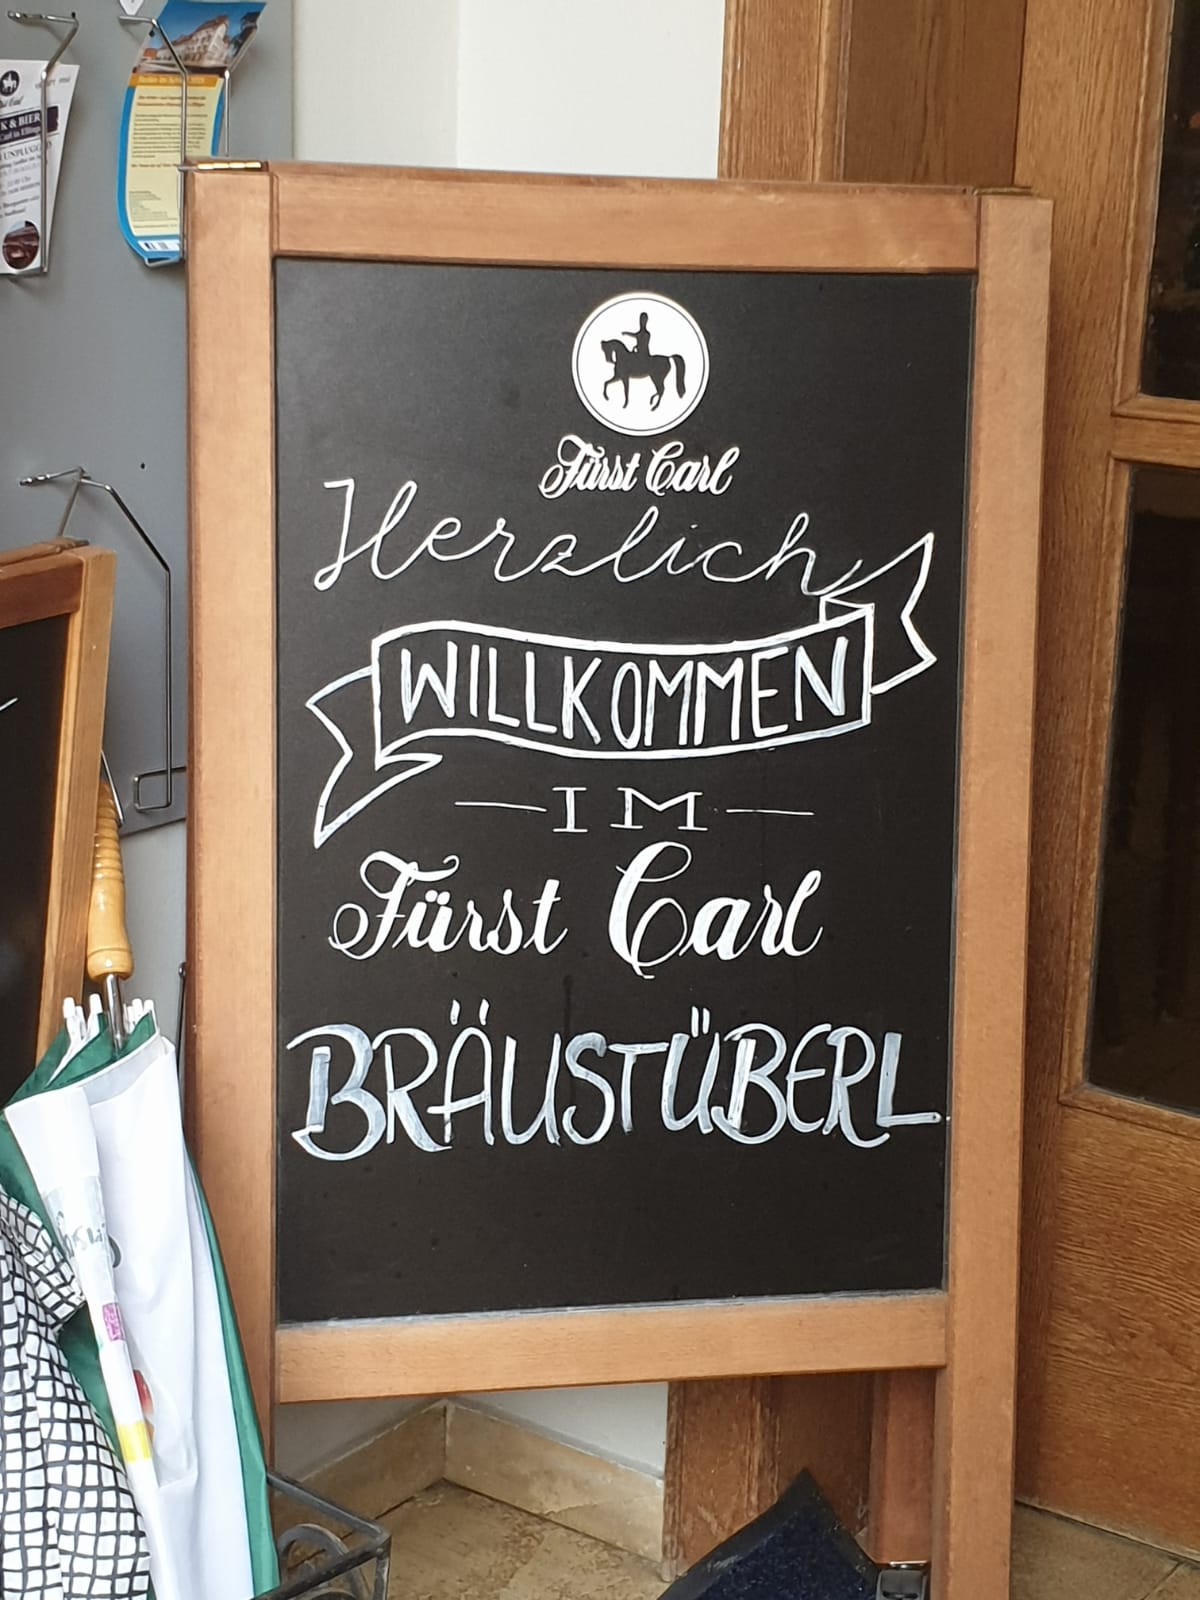 Fürst Carl
Herzlich
WILLKOMMEN
IM
Fürst Carl
BRÄUSTÜBERL
K & BIER
UNPLUGGED